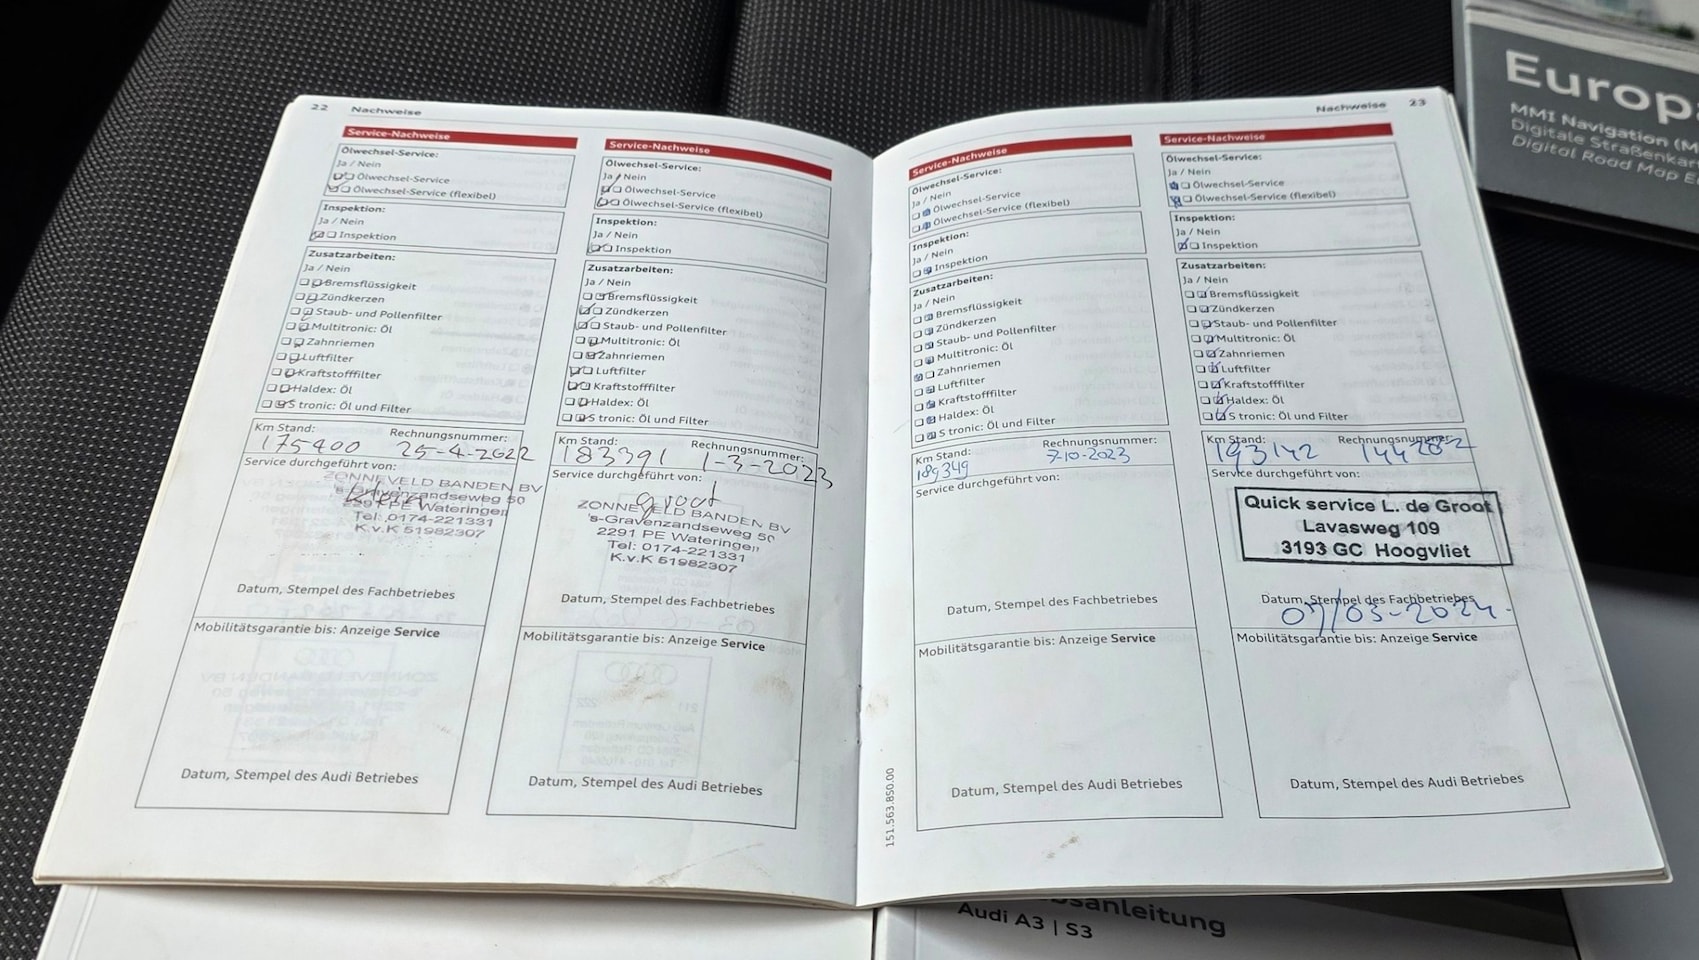 22 Nachweise
Service-Nachweise
Ölwechsel-Service:
Ja / Nein
Ölwechsel-Service
Ölwechsel-Service (flexibel)
Inspektion:
Ja / Nein
Inspektion
Zusatzarbeiten:
Ja / Nein
Bremsflüssigkeit
Zündkerzen
Staub- und Pollenfilter
Multitronic: Öl
Zahnriemen
Luftfilter
Kraftstofffilter
Haldex: Öl
S tronic: Öl und Filter
Km Stand: Rechnungsnummer:
175400 25-4-2022
Service durchgeführt von:
ZONNEVELD BANDEN BV
's-Gravenzandseweg 50
2291 PE Wateringen
Tel: 0174-221331
K.v.K 51982307
Datum, Stempel des Fachbetriebes
Mobilitätsgarantie bis: Anzeige Service
Datum, Stempel des Audi Betriebes
Service-Nachweise
Ölwechsel-Service:
Ja / Nein
Ölwechsel-Service
Ölwechsel-Service (flexibel)
Inspektion:
Ja / Nein
Inspektion
Zusatzarbeiten:
Ja / Nein
Bremsflüssigkeit
Zündkerzen
Staub- und Pollenfilter
Multitronic: Öl
Zahnriemen
Luftfilter
Kraftstofffilter
Haldex: Öl
S tronic: Öl und Filter
Km Stand: Rechnungsnummer:
183391 1-3-2023
Service durchgeführt von:
groot
ZONNEVELD BANDEN BV
's-Gravenzandseweg 50
2291 PE Wateringen
Tel: 0174-221331
K.v.K 51982307
Datum, Stempel des Fachbetriebes
Mobilitätsgarantie bis: Anzeige Service
Datum, Stempel des Audi Betriebes
Nachweise 23
Service-Nachweise
Ölwechsel-Service:
Ja / Nein
Ölwechsel-Service
Ölwechsel-Service (flexibel)
Inspektion:
Ja / Nein
Inspektion
Zusatzarbeiten:
Ja / Nein
Bremsflüssigkeit
Zündkerzen
Staub- und Pollenfilter
Multitronic: Öl
Zahnriemen
Luftfilter
Kraftstofffilter
Haldex: Öl
S tronic: Öl und Filter
Km Stand: Rechnungsnummer:
189349 7-10-2023
Service durchgeführt von:
Datum, Stempel des Fachbetriebes
Mobilitätsgarantie bis: Anzeige Service
Datum, Stempel des Audi Betriebes
151.563.850.00
Service-Nachweise
Ölwechsel-Service:
Ja / Nein
Ölwechsel-Service
Ölwechsel-Service (flexibel)
Inspektion:
Ja / Nein
Inspektion
Zusatzarbeiten:
Ja / Nein
Bremsflüssigkeit
Zündkerzen
Staub- und Pollenfilter
Multitronic: Öl
Zahnriemen
Luftfilter
Kraftstofffilter
Haldex: Öl
S tronic: Öl und Filter
Km Stand: Rechnungsnummer:
193142 1442852
Service durchgeführt von:
Quick service L. de Groot
Lavasweg 109
3193 GC Hoogvliet
Datum, Stempel des Fachbetriebes
07/03-2024
Mobilitätsgarantie bis: Anzeige Service
Datum, Stempel des Audi Betriebes
Europ
MMI Navigation (M
Digitale Straßenkar
Digital Road Map E
sanleitung
Audi A3 | S3